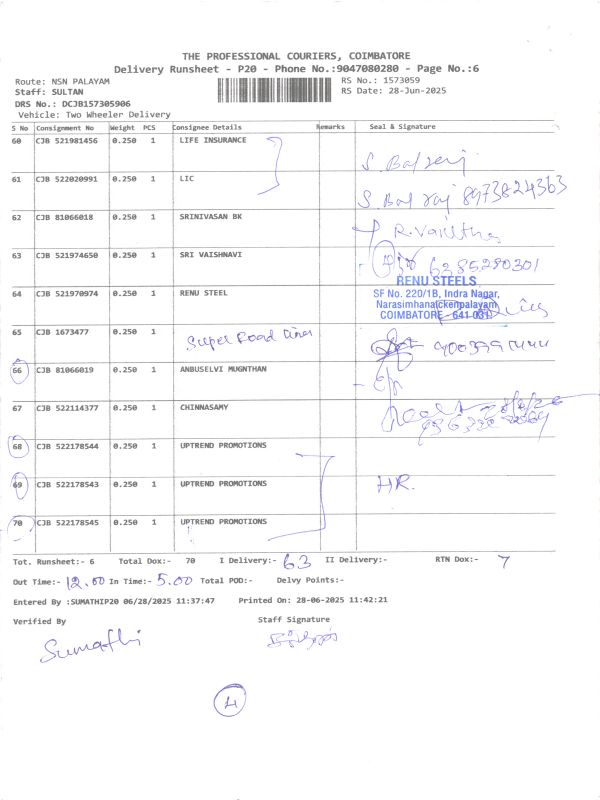 THE PROFESSIONAL COURIERS, COIMBATORE
Delivery Runsheet - P20 - Phone No.:9047080280 - Page No.:6
Route: NSN PALAYAM RS No.: 1573059
Staff: SULTAN RS Date: 28-Jun-2025
DRS No.: DCJB157305906
Vehicle: Two Wheeler Delivery
S No Consignment No Weight PCS Consignee Details Remarks Seal & Signature
60 CJB 521981456 0.250 1 LIFE INSURANCE S. Balraj
61 CJB 522020991 0.250 1 LIC S. Balraj 8973824363
62 CJB 81066018 0.250 1 SRINIVASAN BK
63 CJB 521974650 0.250 1 SRI VAISHNAVI 6385280301
64 CJB 521970974 0.250 1 RENU STEEL
RENU STEELS
SF No. 220/1B, Indra Nagar,
Narasimhanaickenpalayam,
COIMBATORE - 641 031
65 CJB 1673477 0.250 1 Super Road
66 CJB 81066019 0.250 1 ANBUSELVI MUGNTHAN
67 CJB 522114377 0.250 1 CHINNASAMY
68 CJB 522178544 0.250 1 UPTREND PROMOTIONS
69 CJB 522178543 0.250 1 UPTREND PROMOTIONS HR.
70 CJB 522178545 0.250 1 UPTREND PROMOTIONS
Tot. Runsheet:- 6 Total Dox:- 70 I Delivery:- 63 II Delivery:- RTN Dox:- 7
Out Time:- 12.00 In Time:- 5.00 Total POD:- Delvy Points:-
Entered By :SUMATHIP20 06/28/2025 11:37:47 Printed On: 28-06-2025 11:42:21
Verified By Staff Signature
Sumathi